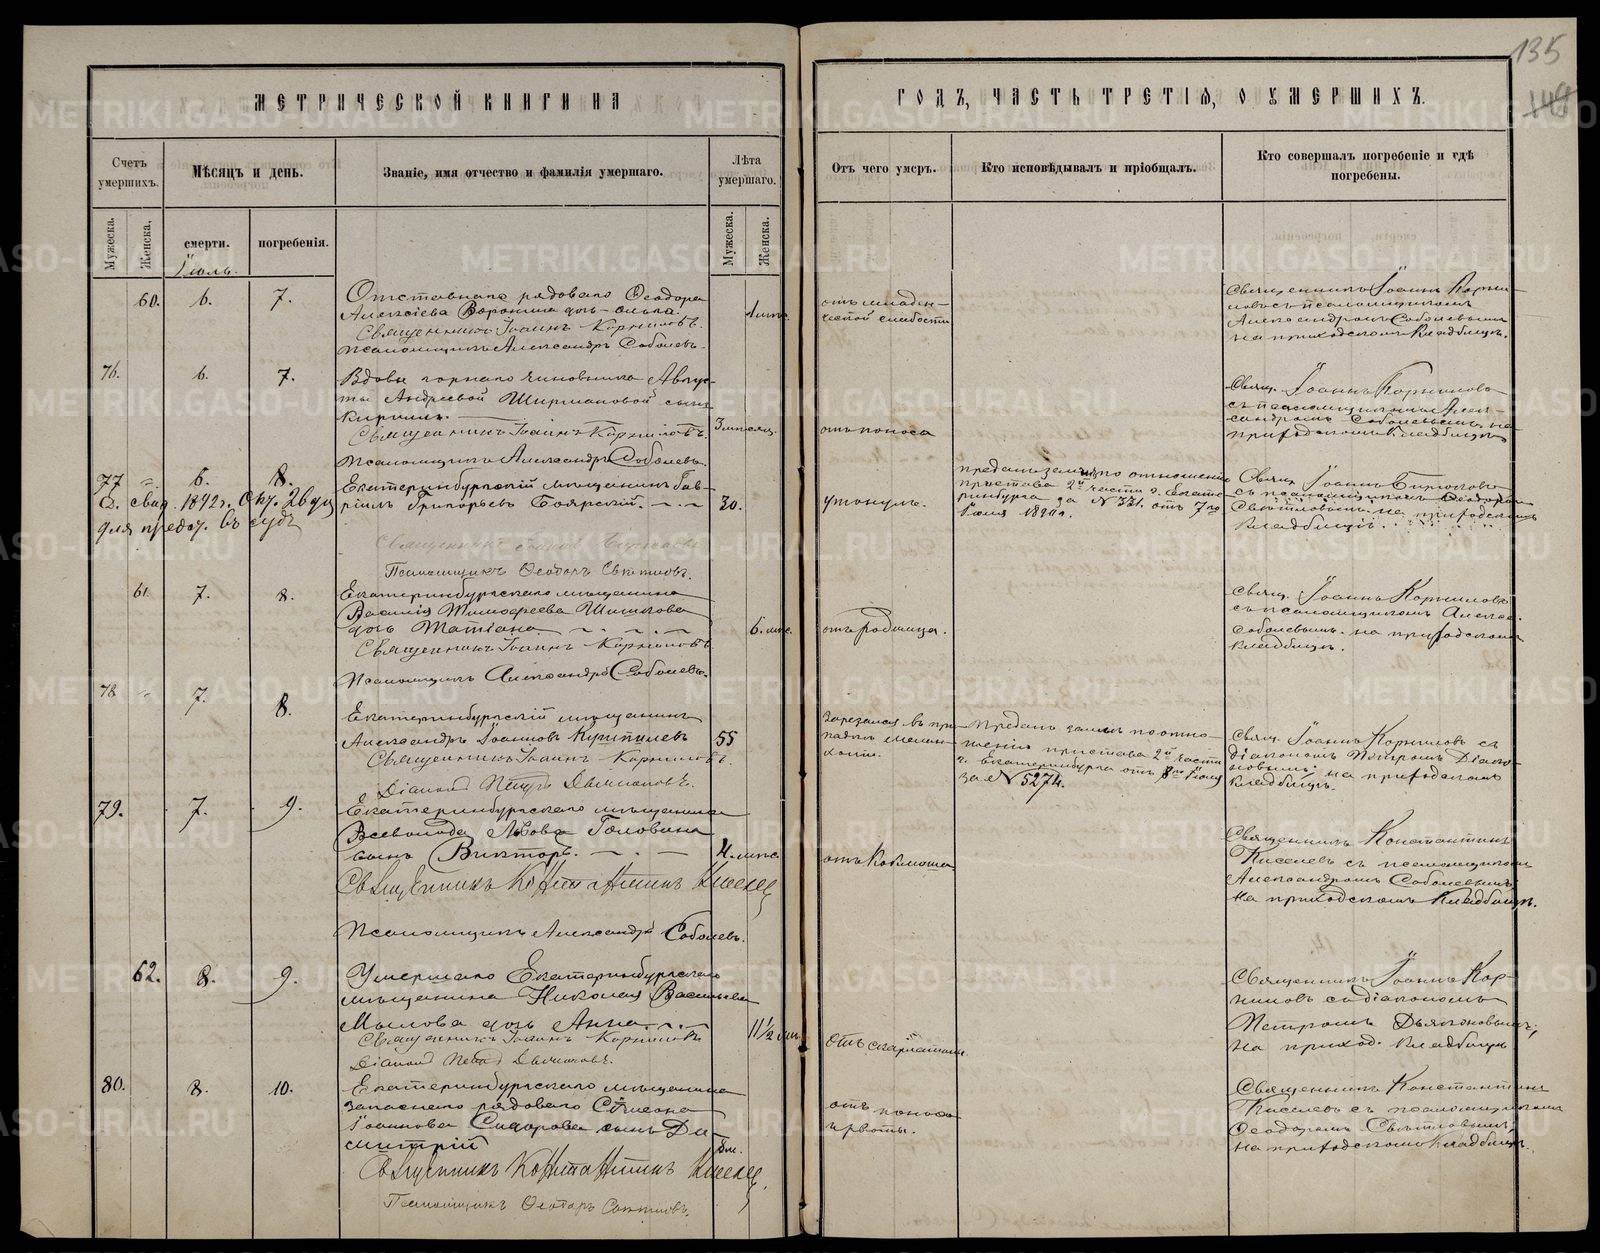 135
149
МЕТРИЧЕСКОЙ КНИГИ НА
ГОДЪ, ЧАСТЬ ТРЕТІЯ, О УМЕРШИХЪ.
Счетъ умершихъ.
Мѣсяцъ и день.
Званіе, имя отчество и фамилія умершаго.
Лѣта умершаго.
Отъ чего умеръ.
Кто исповѣдывалъ и пріобщалъ.
Кто совершалъ погребеніе и гдѣ
погребены.
Мужеска.
Женска.
смерти.
погребенія.
Мужеска.
Женска.
Іюль.
60.
6.
7.
Отставнаго рядоваго Ѳеодора
Алексіева Воронина дочь Ольга.
Священникъ Іоаннъ Корниловъ.
Псаломщикъ Александръ Соболевъ.
1 мѣс.
отъ младен-
ческой слабости
Священникъ Іоаннъ Корни-
ловъ съ псаломщикомъ
Александромъ Соболевымъ
на приходскомъ кладбищѣ.
76.
6.
7.
Вдовы горнаго чиновника Авгус-
ты Андреевой Ширмановой сынъ
Кириллъ.
Священникъ Іоаннъ Корниловъ.
Псаломщикъ Александръ Соболевъ.
3 мѣсяц.
отъ поноса
Свящ. Іоаннъ Корниловъ
съ псаломщикомъ Алек-
сандромъ Соболевымъ на
приходскомъ кладбищѣ
77
6.
8.
Екатеринбургскій мѣщанинъ Гав-
ріилъ Григорьевъ Боярскій.
30.
утонулъ.
преданъ землѣ по отношенію
пристава 2й части г. Екате-
ринбурга за № 331. отъ 7го
Іюля
съ псаломщикомъ Ѳеодоромъ
Свѣтловымъ на приходскомъ
кладбищѣ.
Д. свид. 1892 г. Окт. 26 дня
для предст. въ судъ
Псаломщикъ Ѳеодоръ Свѣтловъ.
61.
7.
8.
Екатеринбургскаго мѣщанина
Василія Тимофеева Шишкова
дочь Татіана
Священникъ Іоаннъ Корниловъ.
Псаломщикъ Александръ Соболевъ.
6. мѣс.
отъ родимца.
Свящ. Іоаннъ Корниловъ
съ псаломщикомъ Алекс.
Соболевымъ на приходскомъ
кладбищѣ.
78
7.
8.
Екатеринбургскій мѣщанинъ
Александръ Іоанновъ
Священникъ Іоаннъ Корниловъ.
Діаконъ Петръ Дьяконовъ.
55
зарезался въ при-
падкѣ мелан-
холіи.
Преданъ землѣ по отно-
шенію пристава 2й части
г. Екатеринбурга отъ 8го Іюля
за № 5274.
Свящ. Іоаннъ Корниловъ съ
діакономъ Петромъ Дьяко-
новымъ; на приходскомъ
кладбищѣ.
79.
7.
9.
Екатеринбургскаго мѣщанина
Всеволода Львова Головина
сынъ Викторъ.
Священникъ Константинъ Киселевъ
Псаломщикъ Александръ Соболевъ.
4. мѣс.
отъ коклюша
Священникъ Константинъ
Киселевъ съ псаломщикомъ
Александромъ Соболевымъ;
на приходскомъ кладбищѣ.
62.
8.
9.
Умершаго Екатеринбургскаго
мѣщанина Николая Васильева
Мылова дочь Анна.
Священникъ Іоаннъ Корниловъ
Діаконъ Петръ Дьяконовъ.
11 1/2 мѣс.
отъ скарлатины.
Священникъ Іоаннъ Кор-
ниловъ съ діакономъ
Петромъ Дьяконовымъ;
на приход. кладбищѣ
80.
8.
10.
Екатеринбургскаго мѣщанина
запаснаго рядоваго Сѵмеона
Іоаннова Сидорова сынъ Ди-
митрій
Священникъ Константинъ Киселевъ.
Псаломщикъ Ѳеодоръ Свѣтловъ.
отъ поноса
и рвоты.
Священникъ Константинъ
Киселевъ съ псаломщикомъ
Ѳеодоромъ Свѣтловымъ,
на приходскомъ кладбищѣ.
METRIKI.GASO-URAL.RU